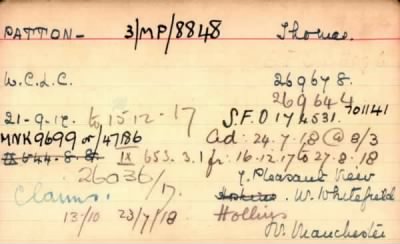 PATTON- 3/MP/8848 Thomas.
W.C.L.C. 269678.
269644
21-9-17. to 15-12-17 S.F.O 174531. 701141
MNK9699 or/47186 Ad: 24.7.18 @ 8/3
IX 653.3.1 fr: 16.12.17 to 27.8.18
26036/17. 7. Pleasant View
Claims. W. Whitefield
13/10 23/7/18 Hollins
Nr. Manchester